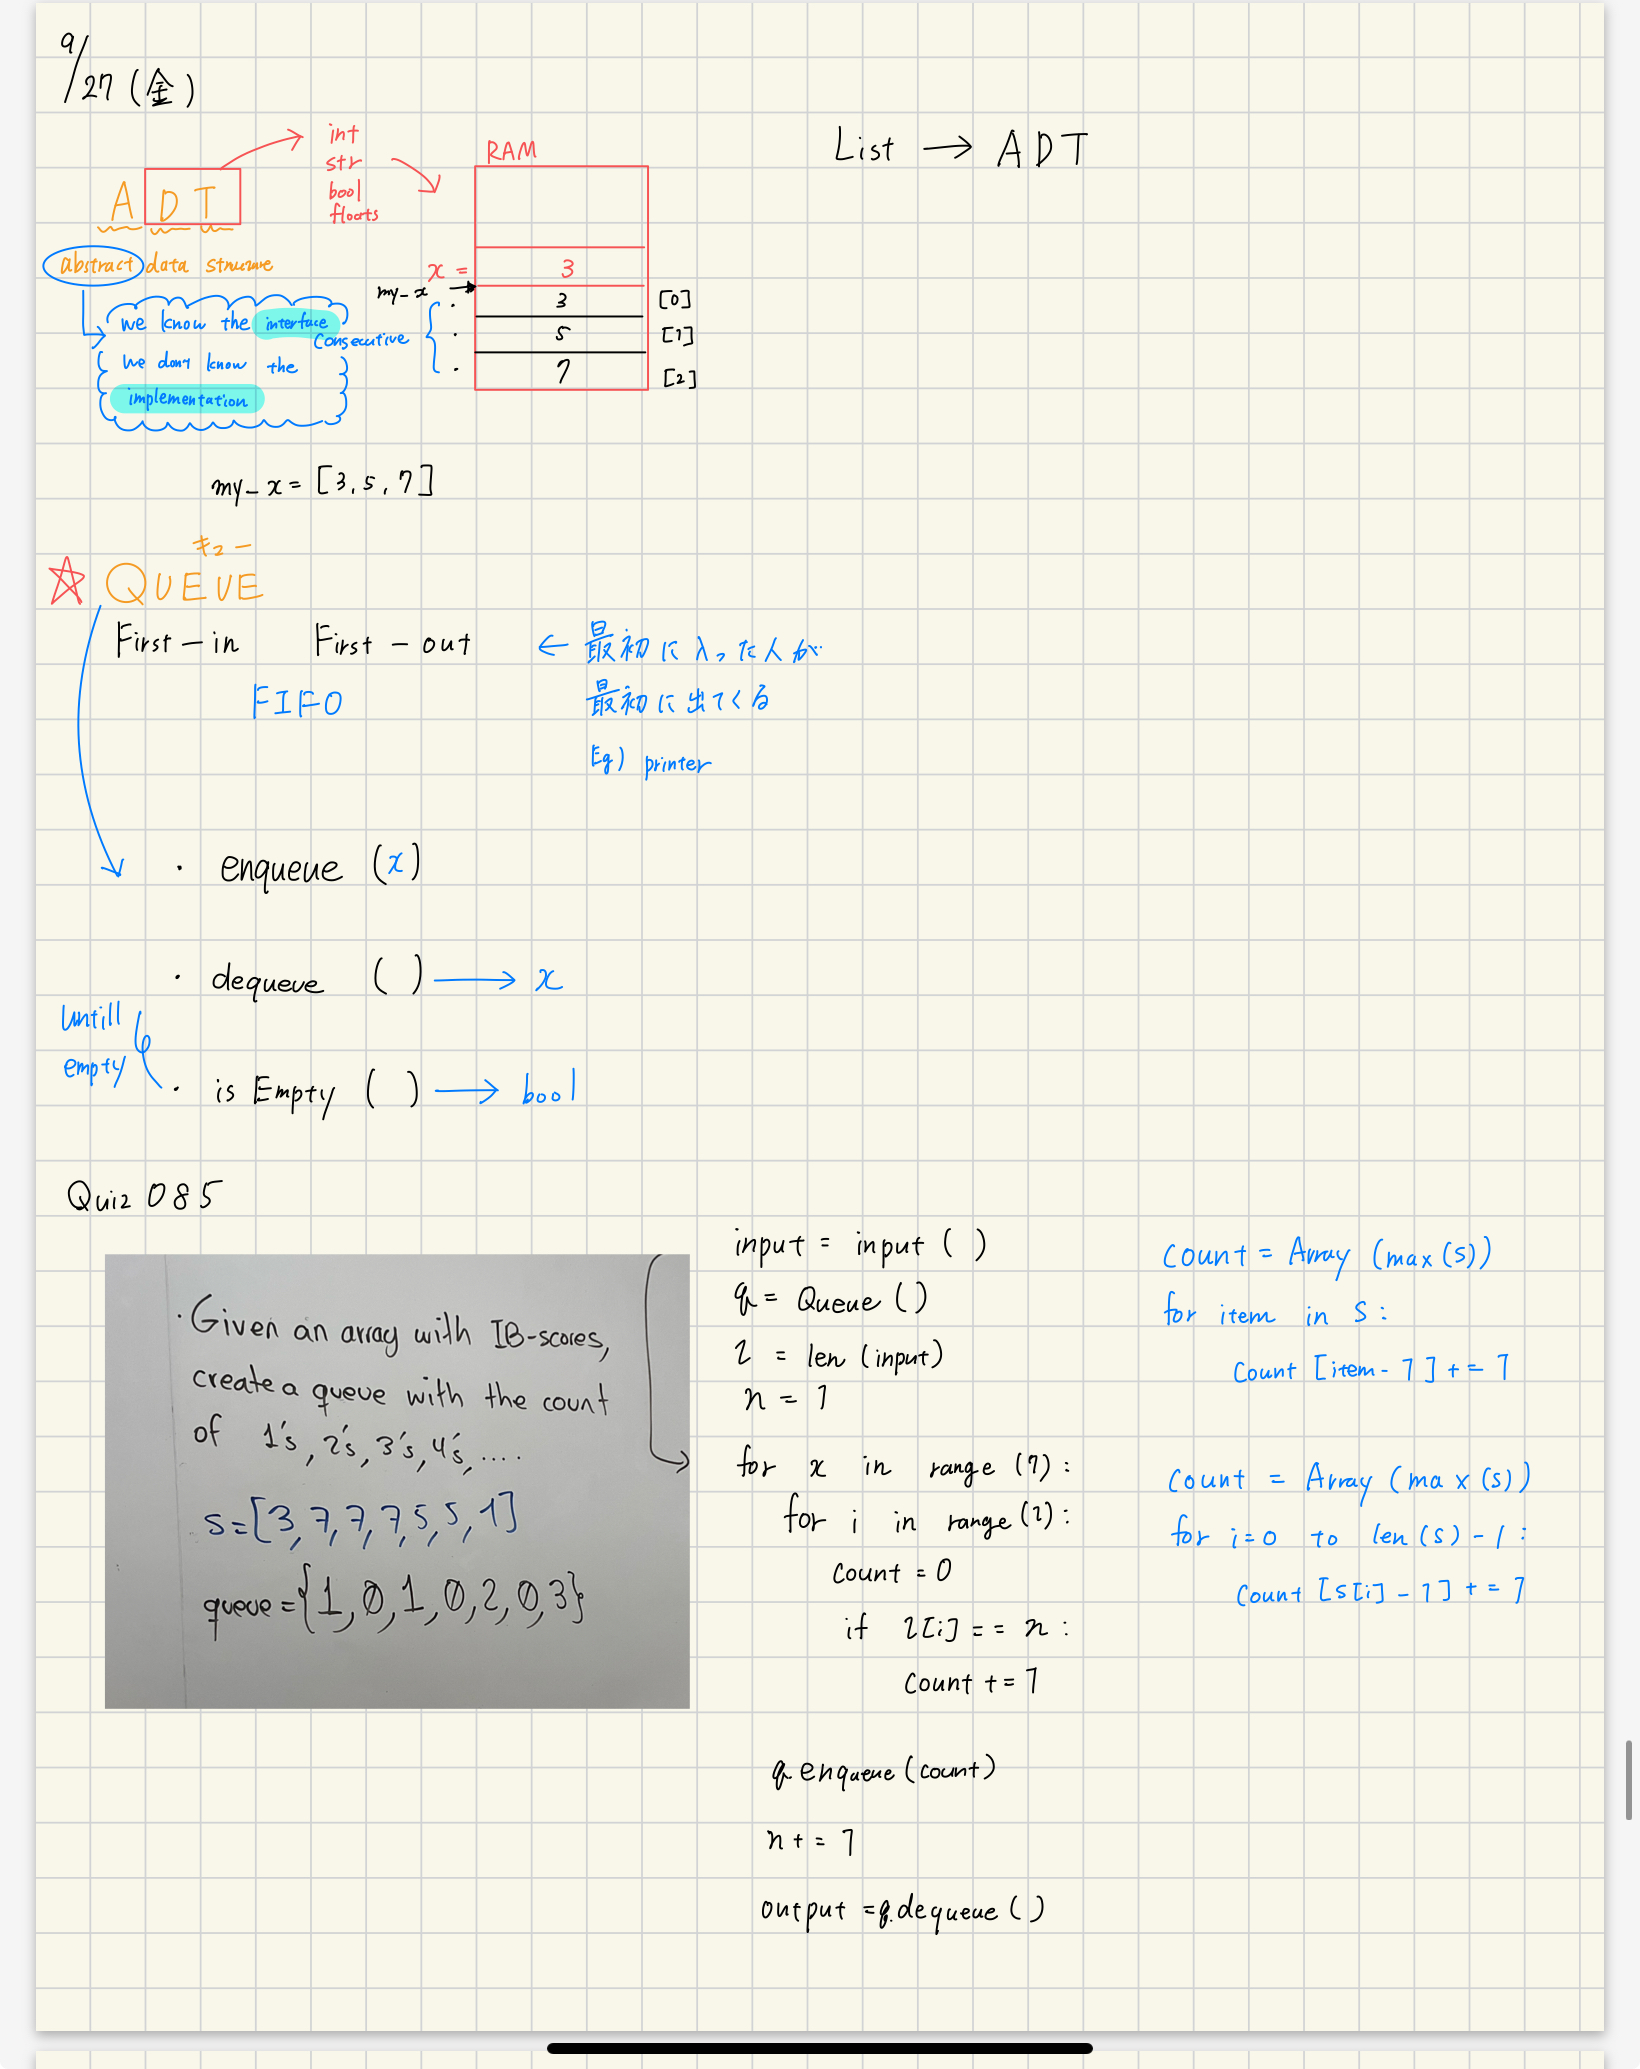 9/27 (金)
int
str
bool
floats
RAM
List → ADT
ADT
abstract data
x = 3
my_x → 3 [0]
5 [1]
7 [2]
consecutive
we know the interface
we don't know the
implementation
my_x = [3, 5, 7]
キュー
☆ QUEUE
First-in First-out ← 最初に入った人が
FIFO 最初に出てくる
Eg) printer
• enqueue (x)
• dequeue ( ) → x
Untill
empty
• isEmpty ( ) → bool
Quiz 085
• Given an array with IB-scores,
create a queue with the count
of 1's, 2's, 3's, 4's, ....
s=[3,7,7,7,5,5,1]
queue={1,0,1,0,2,0,3}
input = input ( )
q = Queue ( )
l = len (input)
n = 1
for x in range (7):
for i in range (l):
count = 0
if l[i] == n:
count += 1
q enqueue (count)
n += 1
output = q.dequeue ( )
count = Array (max (s))
for item in s:
count [item - 1] += 1
count = Array (max (s))
for i=0 to len(s) - 1:
count [s[i] - 1] += 1